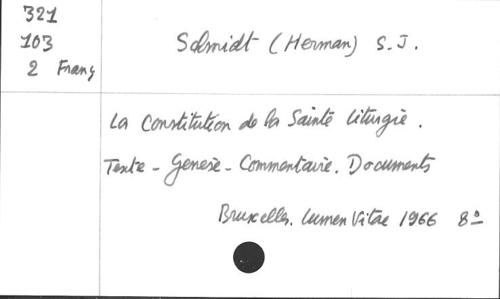 321
103
2 Franç
Schmidt (Herman) S.J.
La Constitution de la Sainte Liturgie.
Texte - Genèse - Commentaire. Documents
Bruxelles. Lumen Vitae 1966 8º